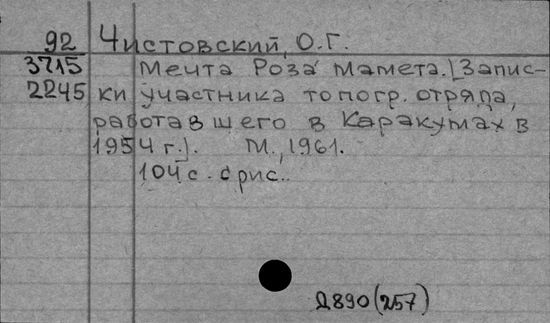 92 Чистовский, О.Г.
3715 Мечта Роза Мамета. [Запис-
2245 ки участника топогр. отряда,
работавшего в Каракумах в
1954 г.]. М., 1961.
104 с. с рис..
Д890(257)